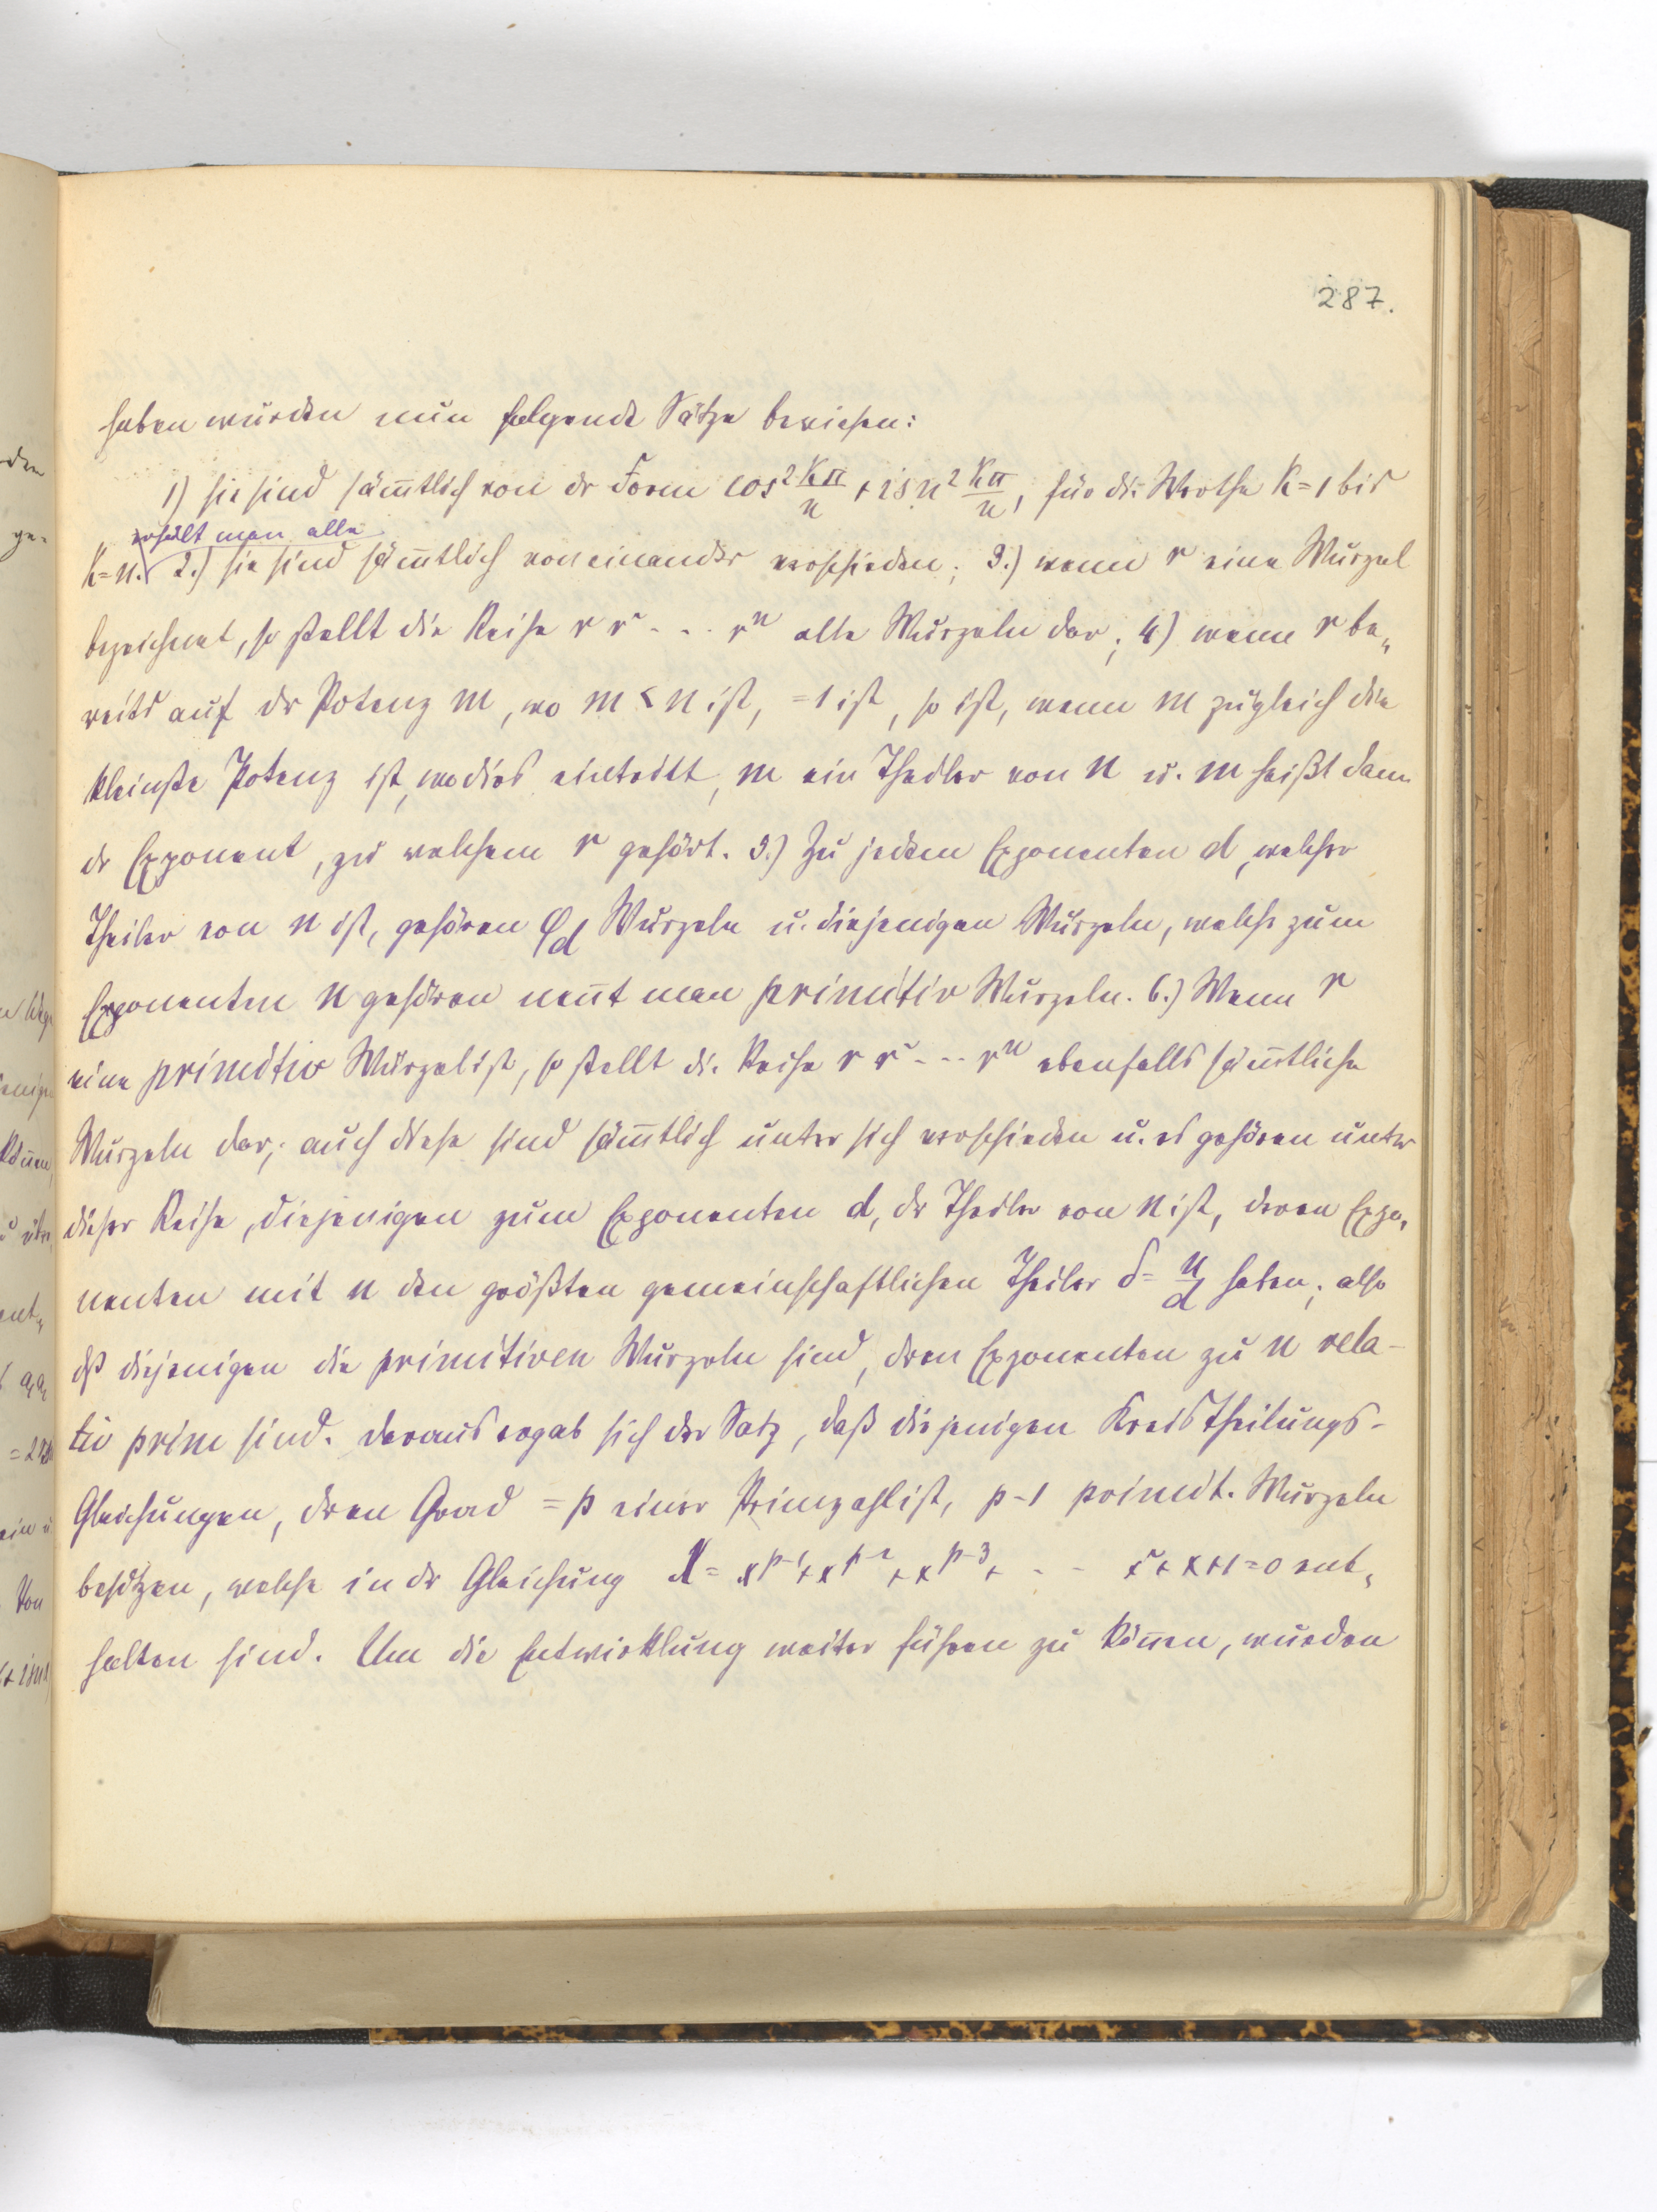 287.
haben wurden nun folgende Sätze bewiesen:
1) sie sind säm̄tlich von dr Form cos 2 Kπ/n + i sn 2 Kπ/n, für die Werthe K = 1 bis
erhält man alle
K = n. 2.) sie sind säm̄tlich voneinander verschieden; 3.) wenn r eine Wurzel
bezeichnet, so stellt die Reihe r r² - - - rⁿ alle Wurzeln dar; 4) wenn r be„
reits auf dr Potenz m, wo m < n ist, = 1 ist, so ist, wenn m zugleich die
kleinste Potenz ist, wo dies eintritt, m ein Theiler von n u. m heißt dann
dr Exponent, zu welchem r gehört. 5.) Zu jedem Exponenten d, welcher
Theiler von n ist, gehören φd Wurzeln u. diejenigen Wurzeln, welche zum
Exponenten n gehören nen̄t man primitiv Wurzeln. 6.) Wenn r
eine primitiv Wurzel ist, so stellt die Reihe r r² - - - rⁿ ebenfalls säm̄tliche
Wurzeln dar; auch diese sind säm̄tlich unter sich verschieden u. es gehören unter
dieser Reihe, diejenigen zum Exponenten d, dr Theiler von n ist, deren Expo„
nenten mit n den größten gemeinschaftlichen Theiler δ = n/d haben; also
dß diejenigen die primitiven Wurzeln sind, dren Exponenten zu n rela-
tiv prim sind. Daraus ergab sich der Satz, daß diejenigen Kreistheilungs-
Gleichungen, dren Grad = p einer Primzahl ist, p-1 primit. Wurzeln
besitzen, welche in dr Gleichung X = x^p-1 + x^p-2 + x^p-3 + - - x² + x + 1 = 0 ent„
halten sind. Um die Entwicklung weiter führen zu kön̄en, wurden